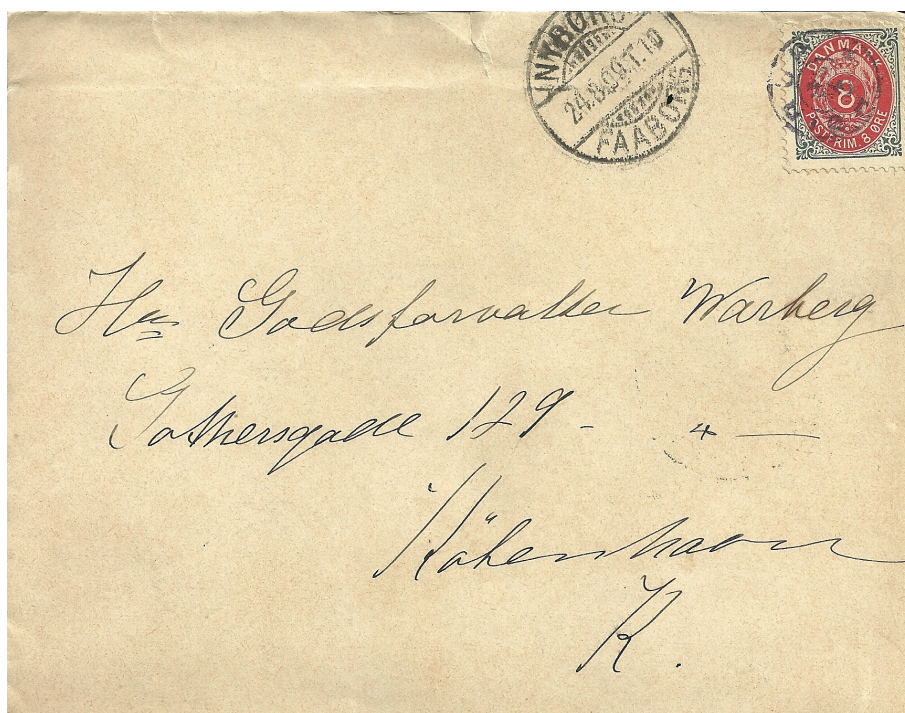 NYBORG
24.8.99.T.10
FAABORG
DANMARK
8
POSTFRIM. 8 ØRE
Hr. Godsforvalter Warberg
Gothersgade 129 - 4 —
København
K.